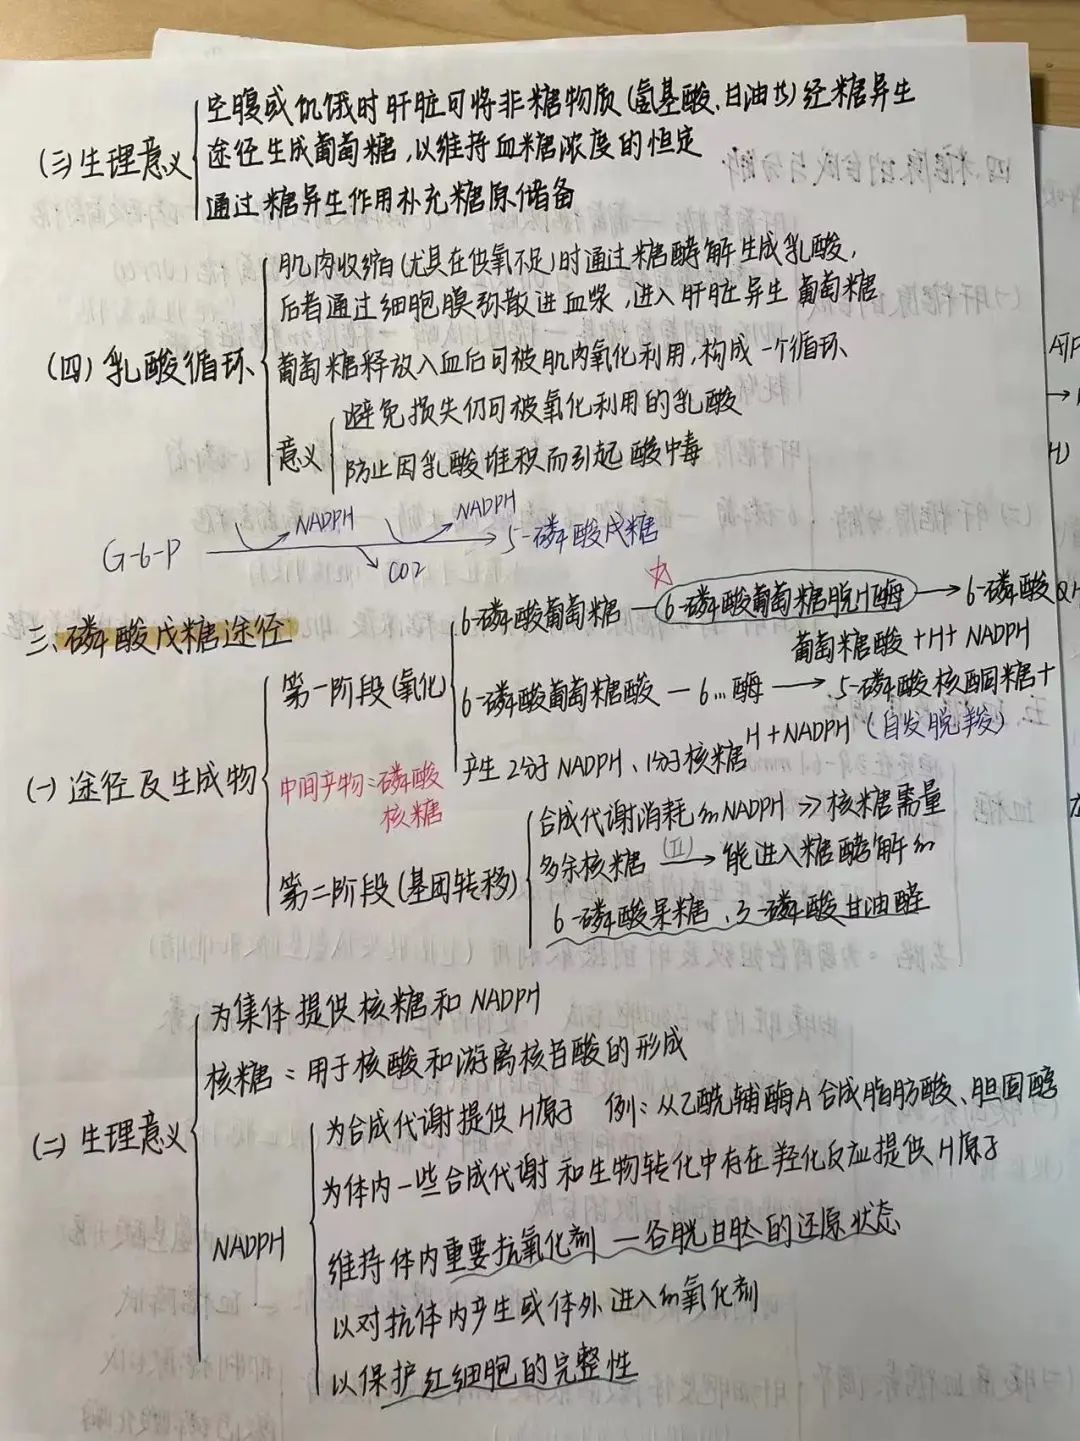 空腹或饥饿时肝脏可将非糖物质(氨基酸、甘油等)经糖异生
(三)生理意义
途径生成葡萄糖,以维持血糖浓度的恒定
通过糖异生作用补充糖原储备
肌肉收缩(尤其在供氧不足)时通过糖酵解生成乳酸,
后者通过细胞膜弥散进血浆,进入肝脏异生葡萄糖
(四)乳酸循环
葡萄糖释放入血后可被肌肉氧化利用,构成一个循环、
避免损失仍可被氧化利用的乳酸
意义
防止因乳酸堆积而引起酸中毒
G-6-P NADPH CO2 NADPH 5-磷酸戊糖
三、磷酸戊糖途径
6-磷酸葡萄糖 — 6-磷酸葡萄糖脱H酶 → 6-磷酸
葡萄糖酸 + H + NADPH
第一阶段(氧化)
6-磷酸葡萄糖酸 — 6...酶 → 5-磷酸核酮糖+
H + NADPH (自发脱羧)
产生2分子NADPH、1分子核糖
(一)途径及生成物
中间产物:磷酸
核糖
合成代谢消耗的NADPH >> 核糖需量
多余核糖 (II)→ 能进入糖酵解的
第二阶段(基团转移)
6-磷酸果糖、3-磷酸甘油醛
为集体提供核糖和NADPH
核糖:用于核酸和游离核苷酸的形成
(二)生理意义
为合成代谢提供H原子 例:从乙酰辅酶A合成脂肪酸、胆固醇
为体内一些合成代谢和生物转化中存在羟化反应提供H原子
NADPH
维持体内重要抗氧化剂 — 谷胱甘肽的还原状态
以对抗体内产生或体外进入的氧化剂
以保护红细胞的完整性